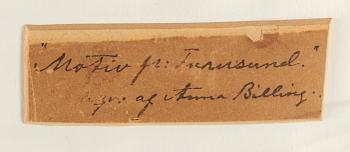 "Motiv fr: Furusund."
af Anna Billing.